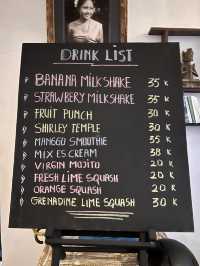 DRINK LIST
BANANA MILKSHAKE 35 K
STRAWBERY MILKSHAKE 35 K
FRUIT PUNCH 30 K
SHIRLEY TEMPLE 30 K
MANGGO SMOOTHIE 35 K
MIX ES.CREAM 38 K
VIRGIN MOJITO 20 K
FRESH LIME SQUASH 20 K
ORANGE SQUASH 20 K
GRENADINE LIME SQUASH 30 K